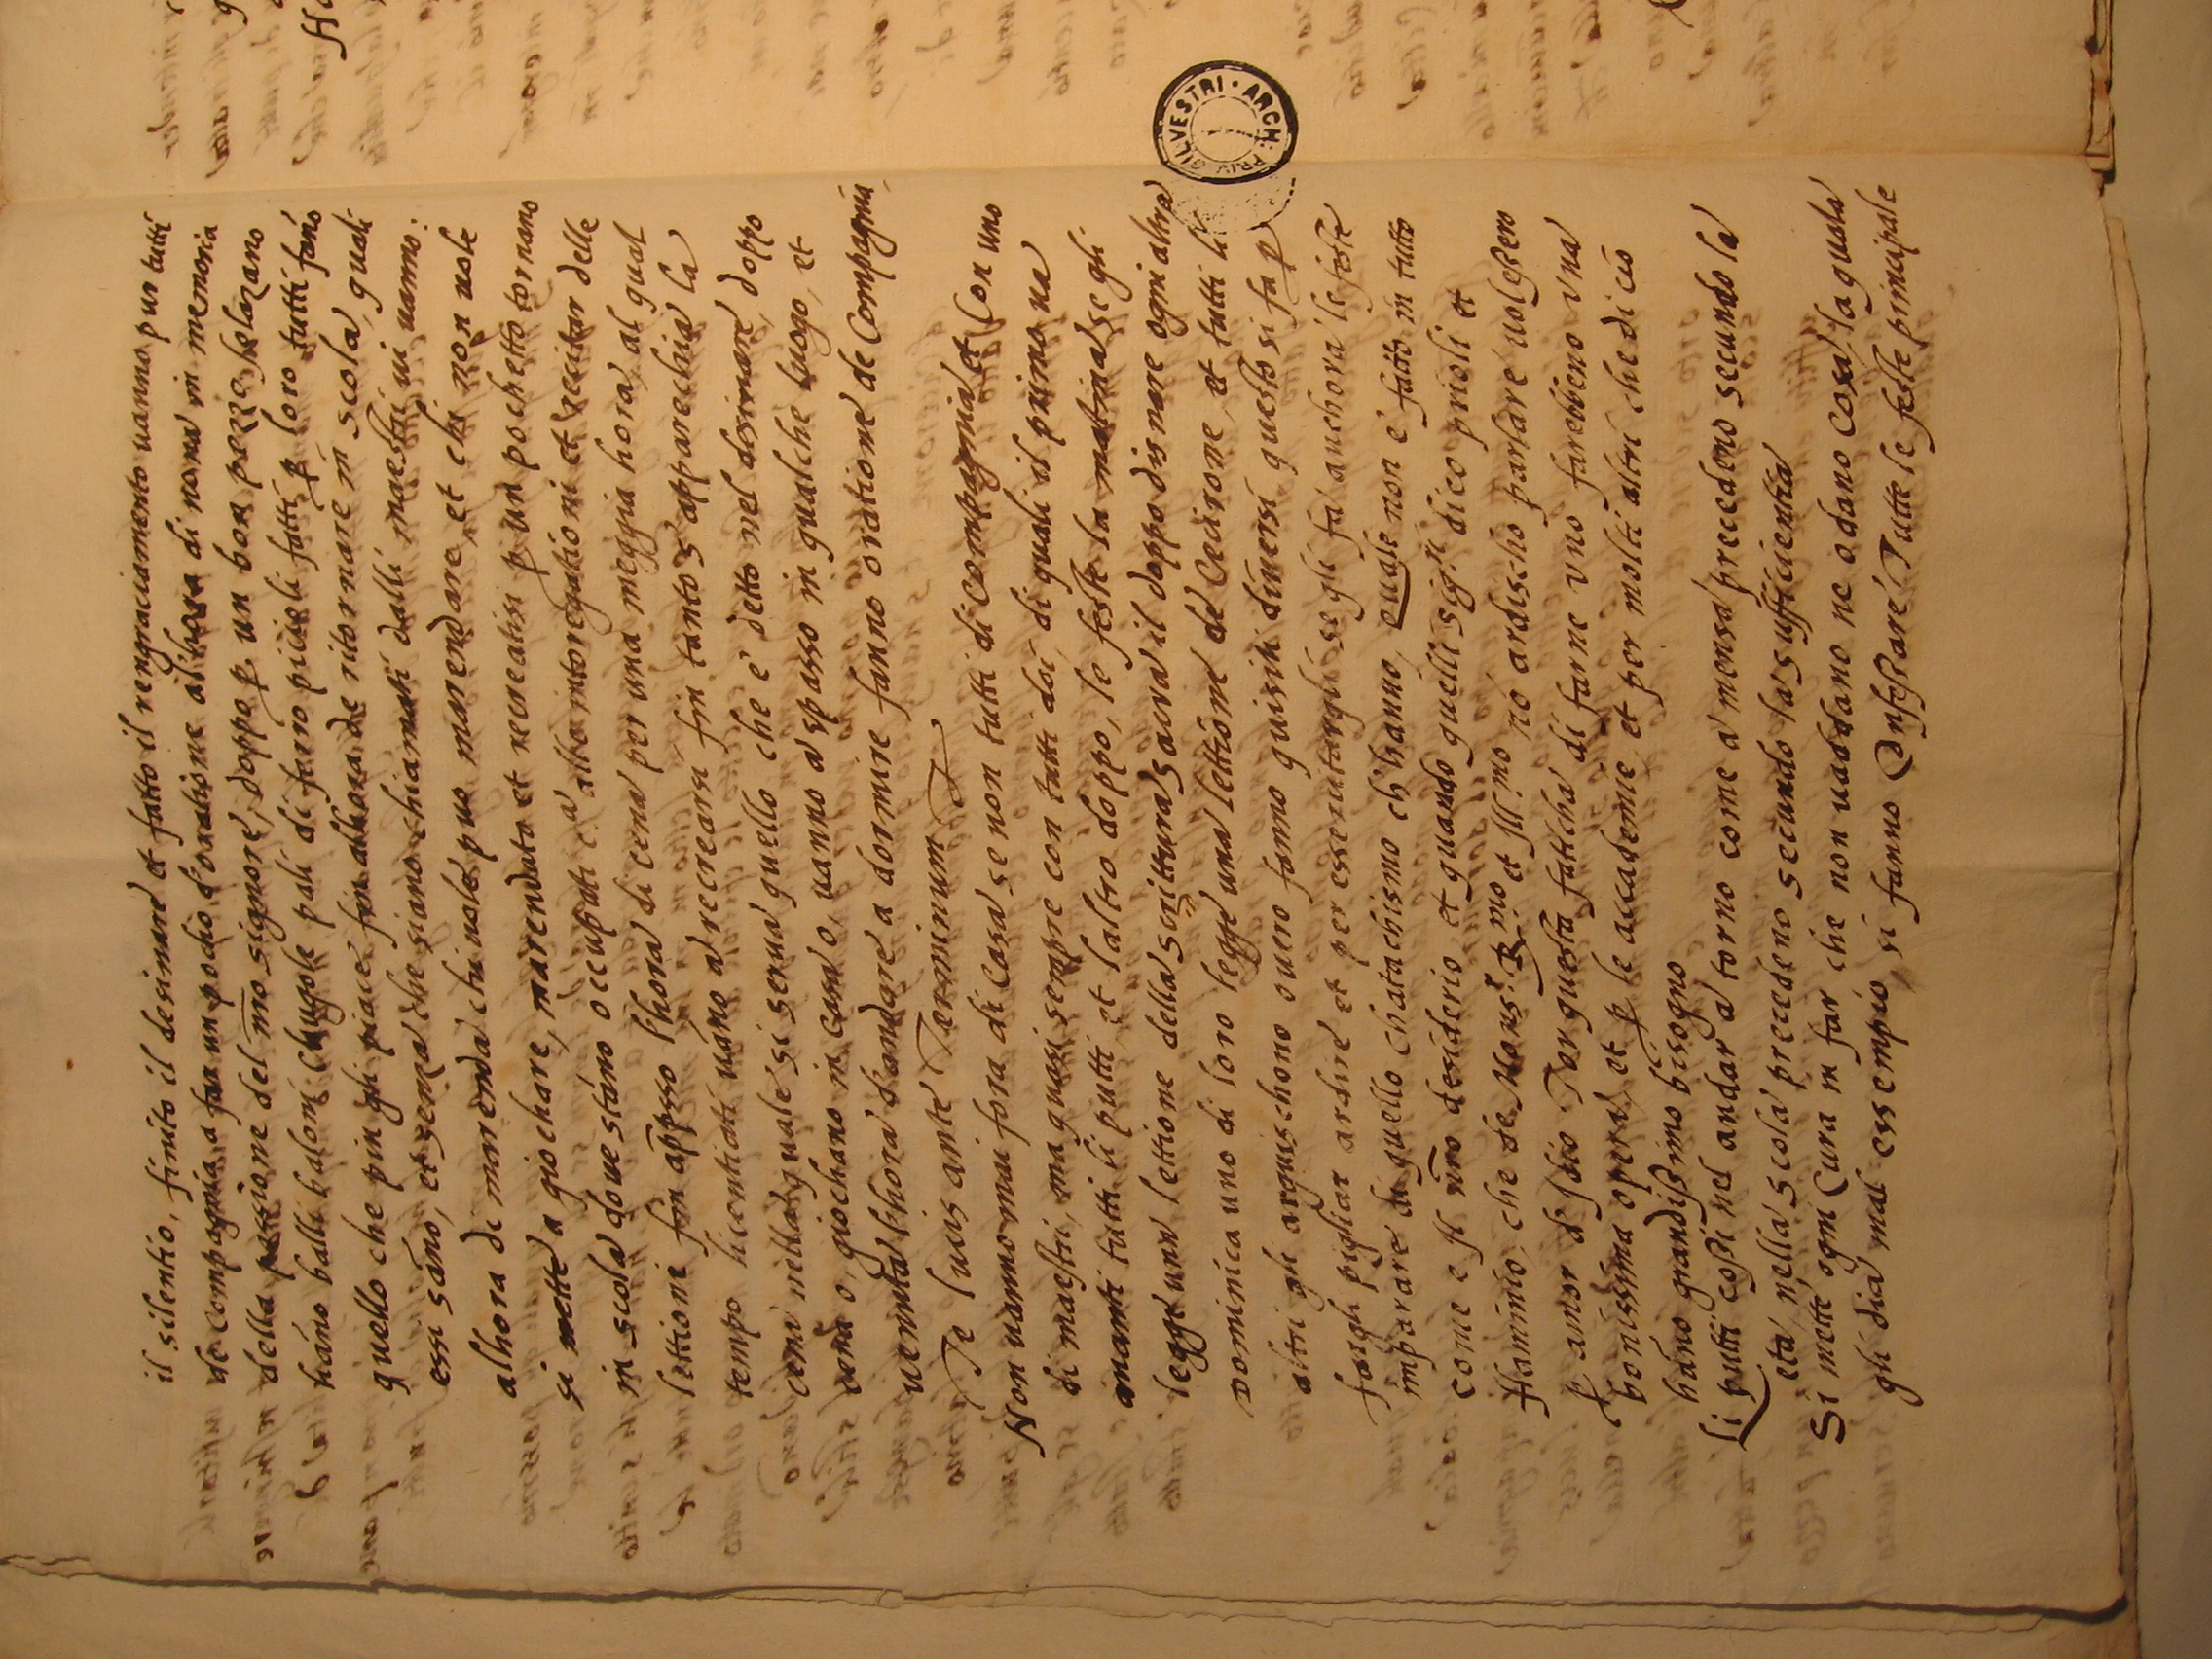 il silentio, finito il desinare et fatto il rengraciamento uanno pur tutti
de compagnia a far un pocho d'oratione alhora di nona in memoria
della passione del nro signore, doppo p un bon pezzo solazano
hano balli baloni chugole pali di ferro picieli fatti p loro tutti fano
quello che piu gli piace fin alhora de ritornare in scola, quali
essi sano, et senza che siano chiamati dalli maestri ui uanno.
alhora di marenda chi uole puo marendare et chi non uole
si mette a giochare, marendato et recreatisi p un pochetto tornano
in scola doue stano occupati c.a altre intoregationi et recitar delle
lettioni fin appsso lhora di cena per una meggia hora, al qual
tempo licentiati uano a recrearsi fin tanto s'apparechia la
cena nella quale si serua quello che e detto nel desinare, doppo
cena o, giochano in casa o, uanno a spasso in qualche luogo, et
uenuta lhora d'andare a dormire fanno oratione de Compagnia,
Te lucis ante Terminum &
Non uanno mai fora di Casa se non tutti di compagnia et Con uno
di maestri, ma quasi sempre con tutti doi, di quali il primo ua
inanti tutti li putti et laltro doppo, le feste la matina se gli
legge una lettione della scrittura sacra il doppo disnare ogni altra
Dominica uno di loro legge una lettione de Cicerone et tutti li
altri gli arguischono ouero fanno quisiti diuersi questo si fa p
fargli pigliar ardire et per essercitargli se gli fa anchora le feste
imparare di quello chatachismo ch'hanno, quale non e fatto in tutto
come e Il nro desiderio et quando quelli sig.ri dico prioli et
flaminio, che de Mons.r R.mo et Ill.mo no ardischo parlare uolessero
p amor d'Idio Tor questa faticha di farne uno farebbero una
bonissima opera, et p le accademie et per molti altri che di cio
hano grandissimo bisogno
Li putti cossi nel andar a torno come a mensa precedono secundo la
eta, nella scola precedeno secundo la sufficientia
Si mette ogni Cura in far che non uaddano ne odano Cosa la quala
gli dia mal essempio, si fanno Confessare Tutte le feste principale
GILVESTRI · ARCH: PRIV.